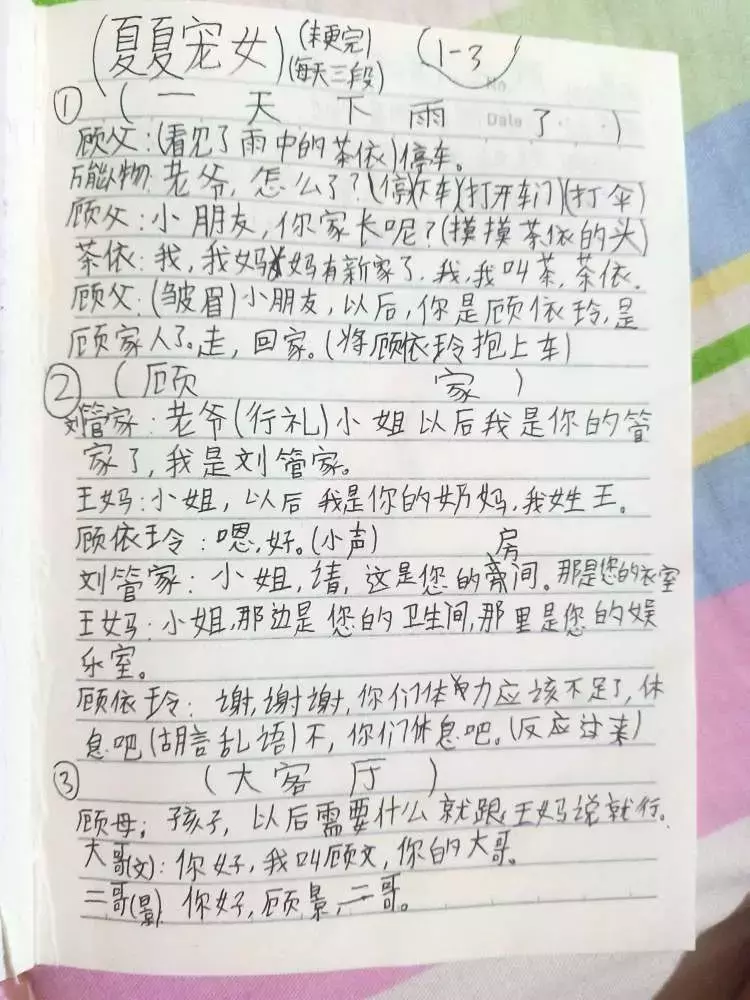 (夏夏宠女)(未更完) (1-3)
(每天三段) No
① (一天下雨了) Date
顾父:(看见了雨中的茶依)停车。
万能人物:老爷,怎么了?(停下车)(打开车门)(打伞)
顾父:小朋友,你家长呢?(摸摸茶依的头)
茶依:我,我妈妈有新家了,我,我叫茶,茶依.
顾父:(皱眉)小朋友,以后,你是顾依玲,是
顾家人了。走,回家。(将顾依玲抱上车)
② (顾家)
刘管家:老爷(行礼)小姐以后我是你的管
家了,我是刘管家。
王妈:小姐,以后我是你的奶妈,我姓王。
顾依玲:嗯,好。(小声)
刘管家:小姐,请,这是您的房间。那是您的衣室
王妈:小姐,那边是您的卫生间,那里是您的娱
乐室。
顾依玲:谢,谢谢,你们体力应该不足了,休
息吧(胡言乱语)不,你们休息吧。(反应过来)
③ (大客厅)
顾母:孩子,以后需要什么就跟王妈说就行.
大哥(文):你好,我叫顾文,你的大哥。
二哥(景)你好,顾景,二哥。